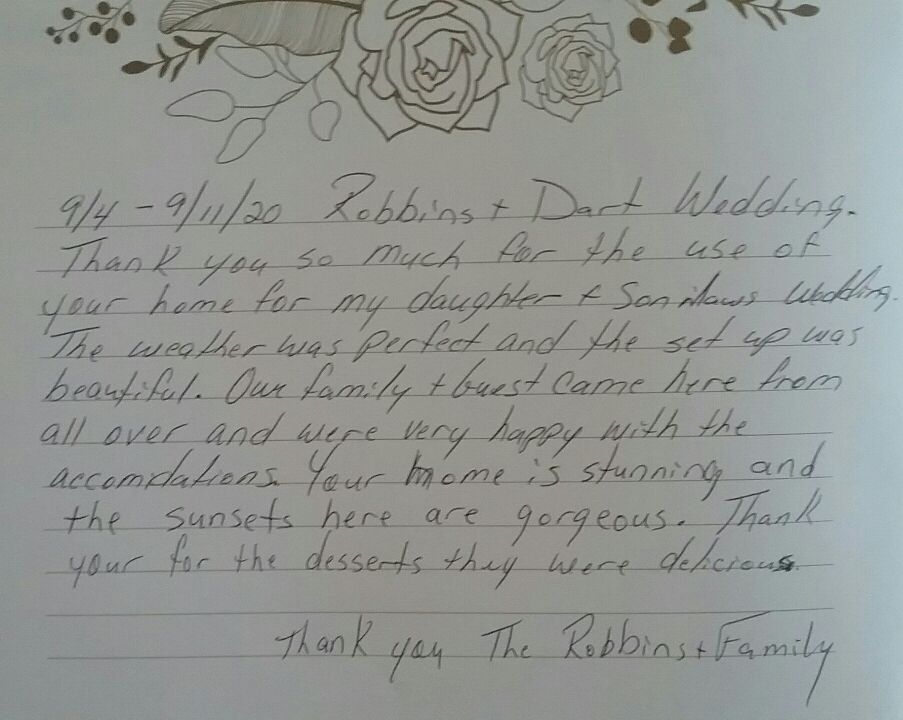 9/4 - 9/11/20 Robbins + Dart Wedding.
Thank you so much for the use of
your home for my daughter + Son inlaws Wedding.
The weather was perfect and the set up was
beautiful. Our family + Guest Came here from
all over and were very happy with the
accomidations. Your home is stunning and
the sunsets here are gorgeous. Thank
your for the desserts they were delicious.
Thank you The Robbins + Family